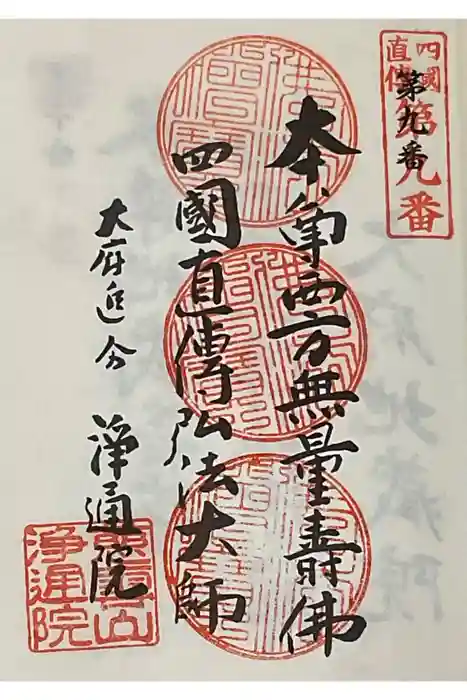 四國
直傳
第九番
第九番
本尊西方無量壽佛
四國直傳弘法大師
大府追分
淨通院
浄通院